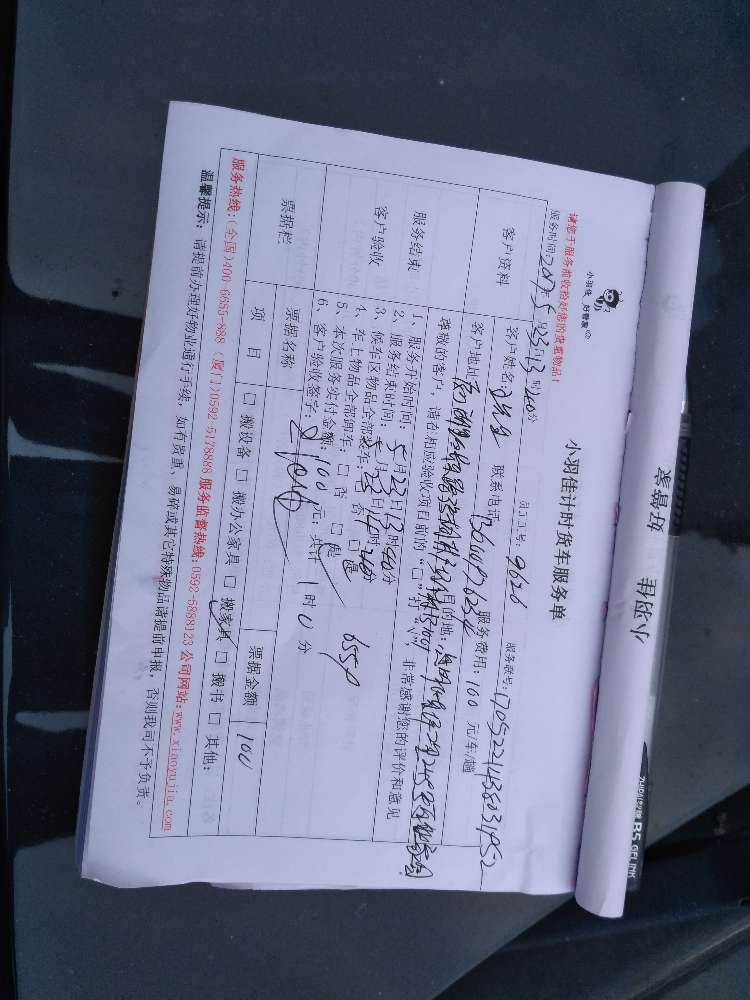 好慕爱 小羽佳
小羽佳 好慕爱
小羽佳计时货车服务单
请您于服务前收捡好您的贵重物品！
服务时间：2017-5月23日13时40分 员工工号：9626 服务单号：1705221438331952
客户资料 客户姓名： 联系电话： 服务费用：100 元/车/趟
客户地址： 目的地：
尊敬的客户，请在相应验收项目前的“□”打“√”，非常感谢您的评价和意见
服务结束 客户验收
1、服务开始时间：5月23日13时40分
2、服务结束时间：5月23日14时40分
3、候车区物品全部装车：□ 否 □ 是
4、车上物品全部卸车：□ 否 □ 是 655P
5、本次服务实付金额：100元；共计 1时0分
6、客户验收签字：
票据栏 票据名称 票据金额 100
项 目 □ 搬设备 □ 搬办公家具 □ 搬家具 □ 搬书 □ 其他：
服务热线：(全国)400-6685-888 (厦门)0592-5178888 服务监督热线：0592-6888123 公司网站：www.xiaoyujia.com
温馨提示：请提前办理好物业通行手续，如有贵重、易碎或其它特殊物品请提前申报，否测我司不予负责。
B5 GEL INK